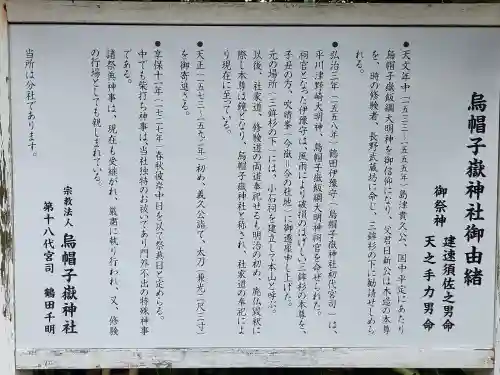 烏帽子嶽神社御由緒
御祭神
建速須佐之男命
天之手力男命
●天文年中(一五三三~一五五五年)島津貴久公、国中平定にあたり
烏帽子嶽飯綱大明神を御信仰になり、父君日新公は木造の本尊
を、時の修験者、長野武蔵坊に命じ、三鉾杉の下に勧請せしめら
れる。
●弘治三年(一五五八年)鶴田伊豫守(烏帽子嶽神社初代宮司)は、
平川津野崎大明神、烏帽子嶽飯綱大明神祠官を命ぜられた。
祠官となった伊豫守は、風雨により破損のはげしい三鉾杉の本尊を、
子丑の方、吹晴峯(今嶽=今の社地)に御遷座申し上げた。
元の場所(三鉾杉の下)には、小石祠を建立して本山と呼ぶ。
以後、社家道、修験道の両道奉祀せるも明治の初め、廃仏毀釈に
際し本尊は鏡となり、烏帽子嶽神社と称され、社家道の奉祀によ
り現在に至っている。
●天正(一五七三~一五九二年)初め、義久公詣で、太刀(兼光二尺三寸)
を御寄進さる。
●享保十二年(一七二七年)春秋彼岸中日を以て祭典日と定める。
中でも柴打ち神事は、当社独特のお祓いであり門外不出の特殊神事
である。
諸祭典神事は、現在も受継がれ、厳粛に執り行われ、又、修験
の行場としても親しまれている。
宗教法人 烏帽子嶽神社
第十八代宮司 鶴田千明
当所は分社であります。